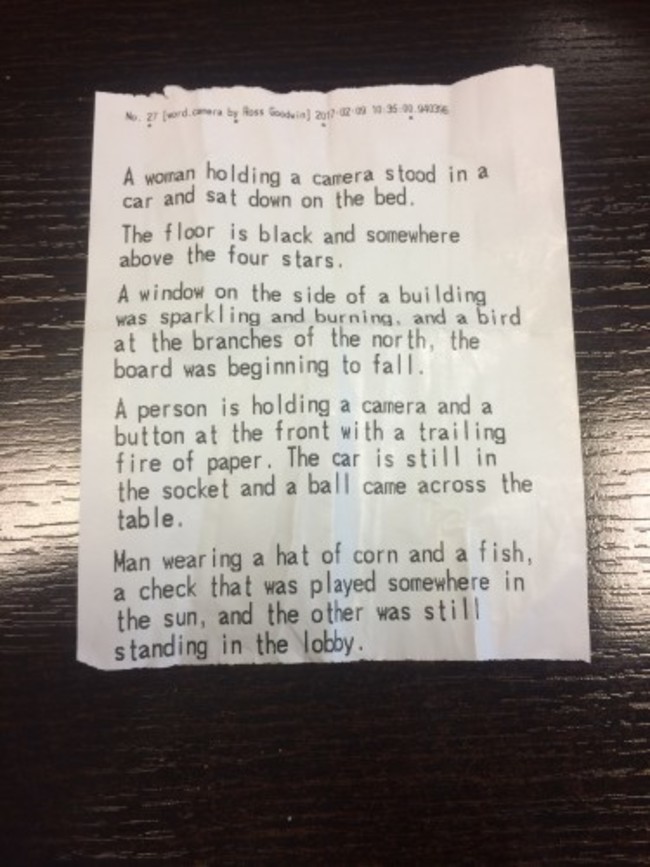 No. 27 [word.camera by Ross Goodwin] 2017-02-09 10:35:00.940396
A woman holding a camera stood in a
car and sat down on the bed.
The floor is black and somewhere
above the four stars.
A window on the side of a building
was sparkling and burning, and a bird
at the branches of the north, the
board was beginning to fall.
A person is holding a camera and a
button at the front with a trailing
fire of paper. The car is still in
the socket and a ball came across the
table.
Man wearing a hat of corn and a fish,
a check that was played somewhere in
the sun, and the other was still
standing in the lobby.